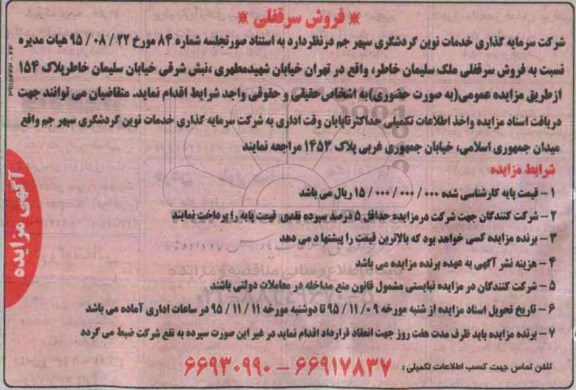 * فروش سرقفلی *
شرکت سرمایه گذاری خدمات نوین گردشگری سپهر جم درنظر دارد به استناد صورتجلسه شماره ۸۴ مورخ ۲۲ / ۰۸ / ۹۵ هیات مدیره
نسبت به فروش سرقفلی ملک سلیمان خاطر، واقع در تهران خیابان شهیدمطهری ،نبش شرقی خیابان سلیمان خاطرپلاک ۱۵۴
از طریق مزایده عمومی(به صورت حضوری)به اشخاص حقیقی و حقوقی واجد شرایط اقدام نماید. متقاضیان می توانند جهت
دریافت اسناد مزایده واخذ اطلاعات تکمیلی حداکثر تاپایان وقت اداری به شرکت سرمایه گذاری خدمات نوین گردشگری سپهر جم واقع
میدان جمهوری اسلامی، خیابان جمهوری غربی پلاک ۱۴۵۳ مراجعه نمایند
شرایط مزایده
۱ - قیمت پایه کارشناسی شده ۰۰۰ / ۰۰۰ / ۰۰۰ / ۱۵ ریال می باشد
۲ - شرکت کنندگان جهت شرکت در مزایده حداقل ۵ درصد سپرده نقدی قیمت پایه را پرداخت نمایند
۳ - برنده مزایده کسی خواهد بود که بالاترین قیمت را پیشنهاد می دهد
۴ - هزینه نشر آگهی به عهده برنده مزایده می باشد
۵ - شرکت کنندگان در مزایده نبایستی مشمول قانون منع مداخله در معاملات دولتی باشند
۶ - تاریخ تحویل اسناد مزایده از شنبه مورخه ۰۹ / ۱۱ / ۹۵ تا دوشنبه مورخه ۱۱ / ۱۱ / ۹۵ در ساعات اداری آماده می باشد
۷ - برنده مزایده باید ظرف مدت هفت روز جهت انعقاد قرارداد اقدام نماید در غیر این صورت سپرده به نفع شرکت ضبط می گردد
تلفن تماس جهت کسب اطلاعات تکمیلی : ۶۶۹۱۷۸۳۷ - ۶۶۹۳۰۹۹۰
آگهی مزایده